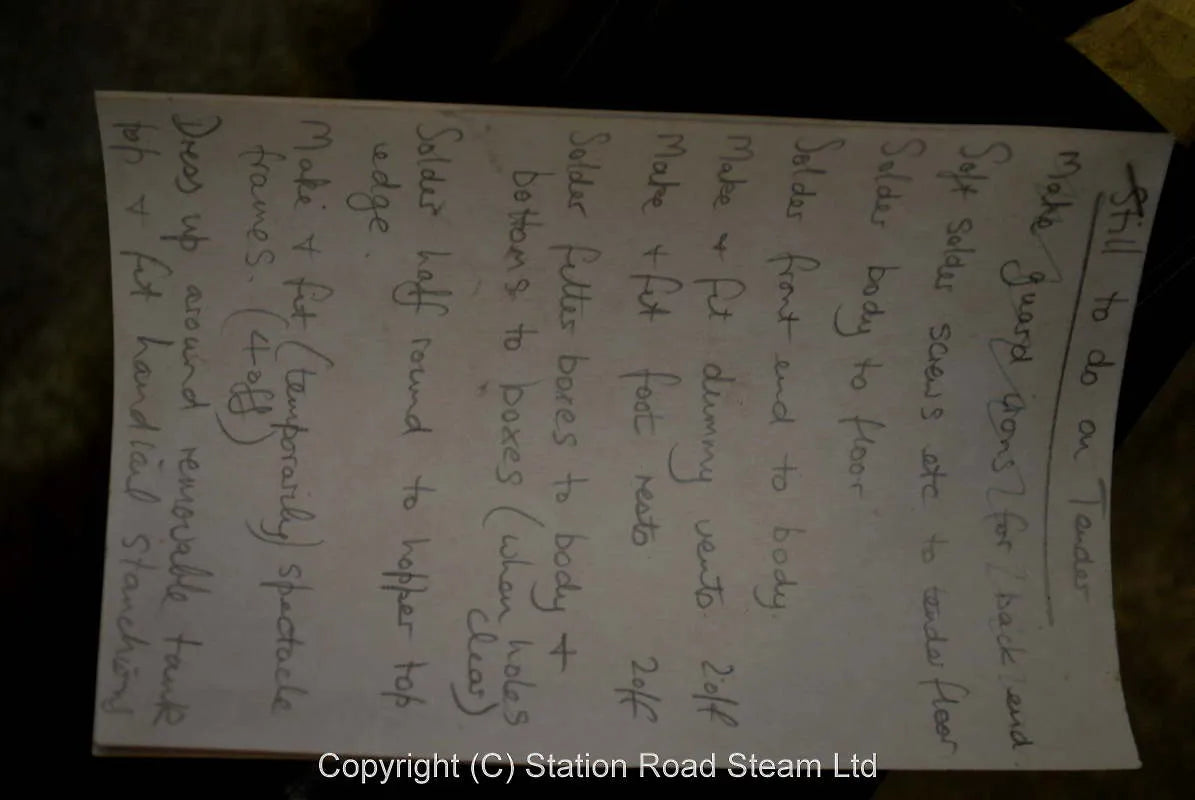 Still to do on Tender
Make guard irons for back end.
Soft solder screws etc to tender floor
Solder body to floor
Solder front end to body.
Make + fit dummy vents. 2 off
Make + fit foot rests. 2 off
Solder filter boxes to body +
bottoms to boxes (when holes
clear)
Solder half round to hopper top
edge.
Make + fit (temporarily) spectacle
frames. (4 off)
Dress up around removable tank
top + fit handrail stanchions
Copyright (C) Station Road Steam Ltd